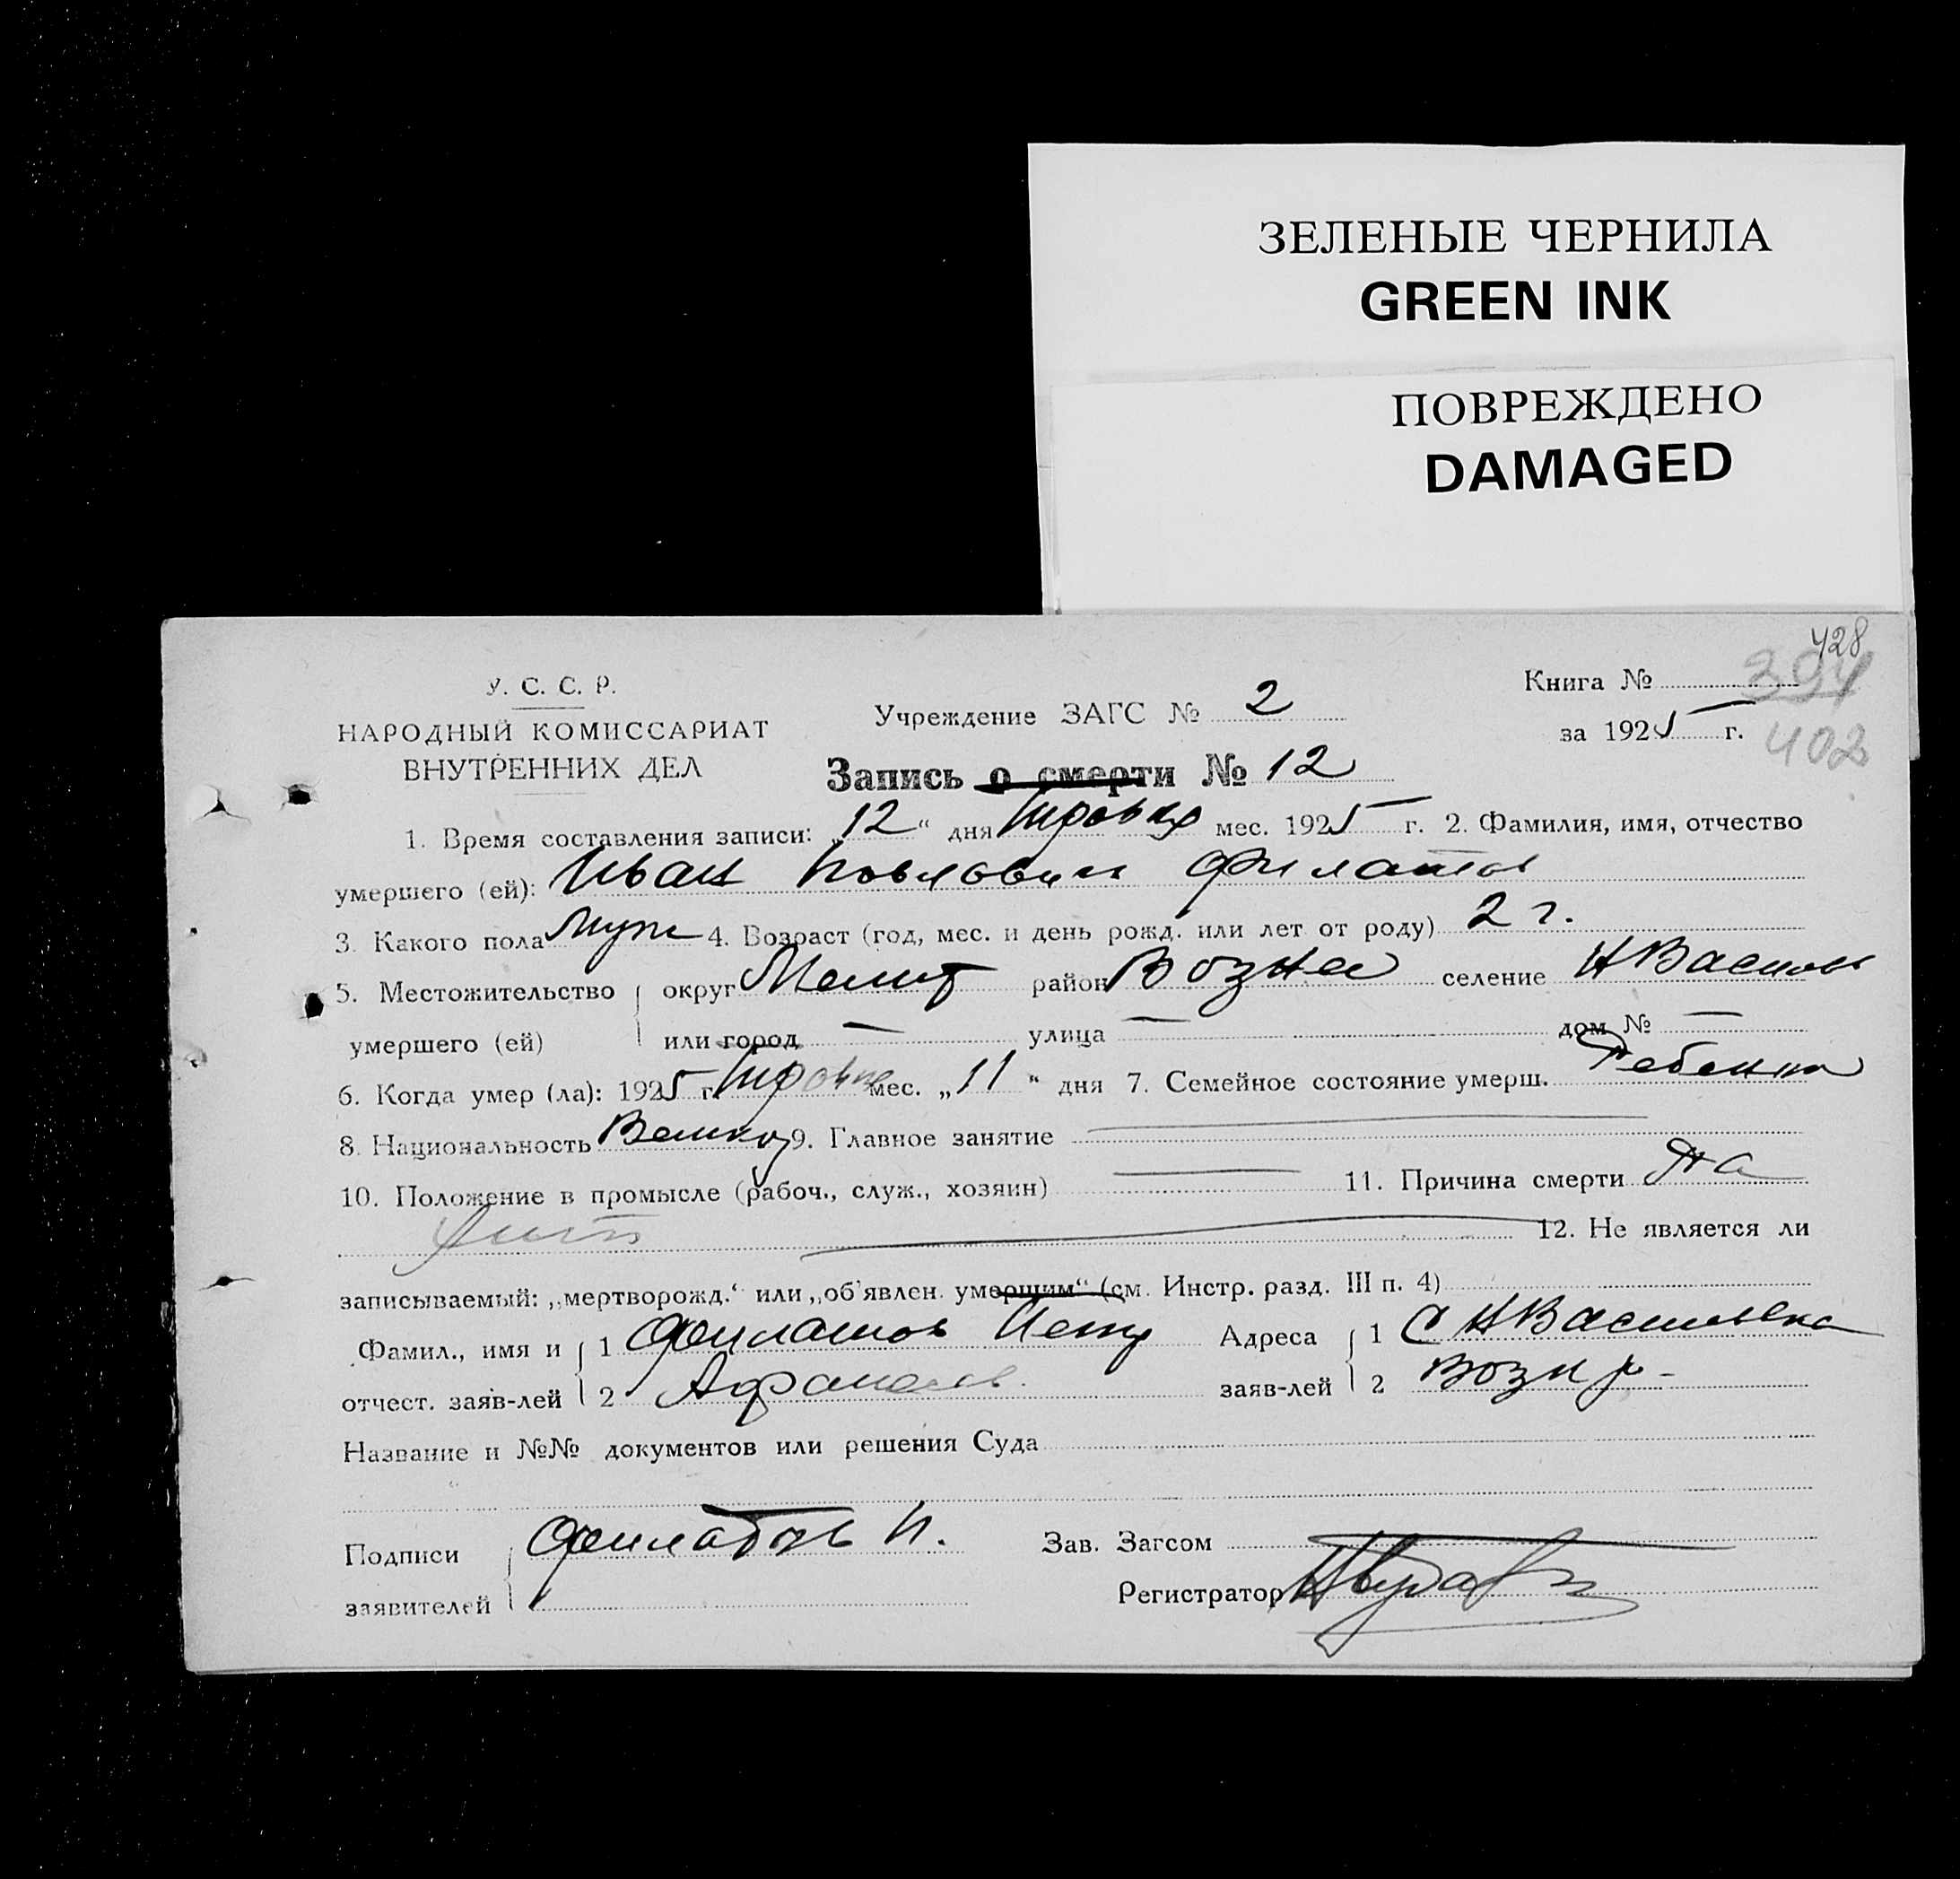 ЗЕЛЕНЫЕ ЧЕРНИЛА
GREEN INK
ПОВРЕЖДЕНО
DAMAGED
428
394
402
У. С. С. Р.
НАРОДНЫЙ КОМИССАРИАТ
ВНУТРЕННИХ ДЕЛ
Учреждение ЗАГС № 2
Книга №
за 1925 г.
Запись о смерти № 12
1. Время составления записи: „12“ дня мес. 1925 г. 2. Фамилия, имя, отчество
умершего (ей): Иван Филатов
3. Какого пола Муж 4. Возраст (год, мес. и день рожд. или лет от роду) 2 г.
5. Местожительство округ Мелит район селение
умершего (ей) или город — улица — дом № —
6. Когда умер (ла): 1925 г. мес. „11“ дня 7. Семейное состояние умерш.
8. Национальность 9. Главное занятие
10. Положение в промысле (рабоч., служ., хозяин) 11. Причина смерти
12. Не является ли
записываемый: „мертворожд.“ или „об'явлен. умершим“ (см. Инстр. разд. III п. 4)
Фамил., имя и 1 Филатов Адреса 1 С НВасильевка
отчест. заяв-лей 2 заяв-лей 2 Возн р-
Название и №№ документов или решения Суда
Подписи Филатовъ П. Зав. Загсом
заявителей Регистратор